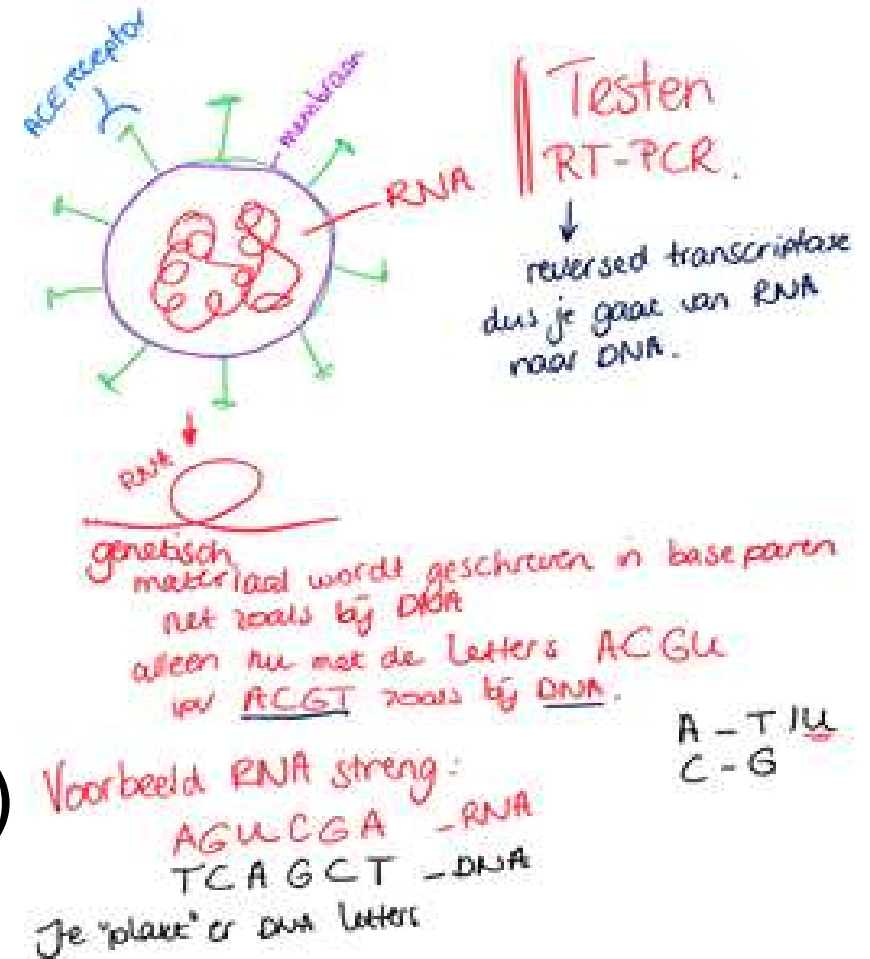 ACE receptor
membraan
RNA
Testen
RT-PCR.
reversed transcriptase
dus je gaat van RNA
naar DNA.
RNA
genetisch
materiaal wordt geschreven in baseparen
net zoals bij DNA
alleen nu met de letters ACGU
ipv ACGT zoals bij DNA.
A - T/U
C - G
) Voorbeeld RNA streng:
AGUCGA - RNA
TCAGCT - DNA
Je "plakt" er DNA letters